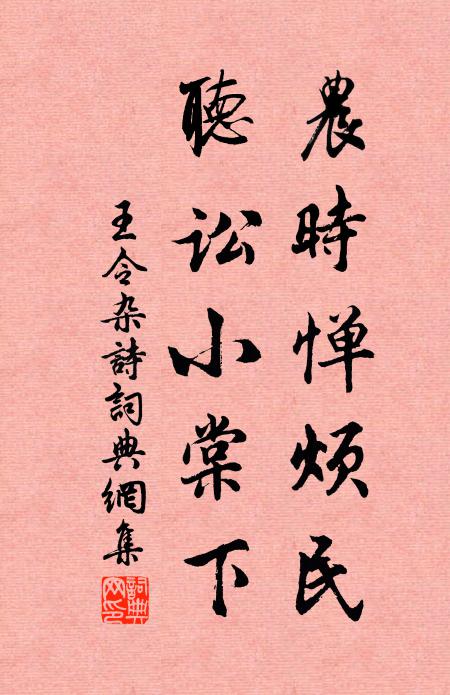 農時憚煩民
聽訟小棠下
王令杂詩詞典網集
詞典网印